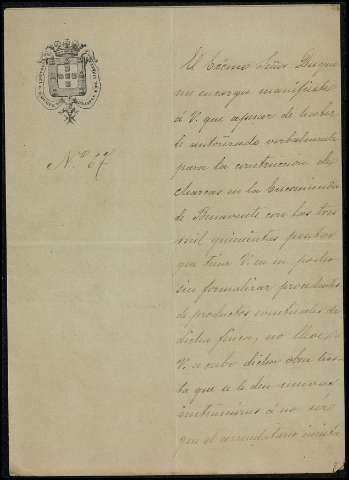 El Excmo Señor Duque
me encarga manifieste
á V. que apesar de haber
le autorizado verbalmente
para la construccion de
charcas en la Encomienda
de Benavente con las tres
mil quinientas pesetas
que tiene V. en su poder
sin formalizar procedentes
de productos naturales de
dicha finca, no lleve
V. á cabo dicha obra has
ta que se le den nuevas
instrucciones á no ser
que el arrendatario
Nº 67